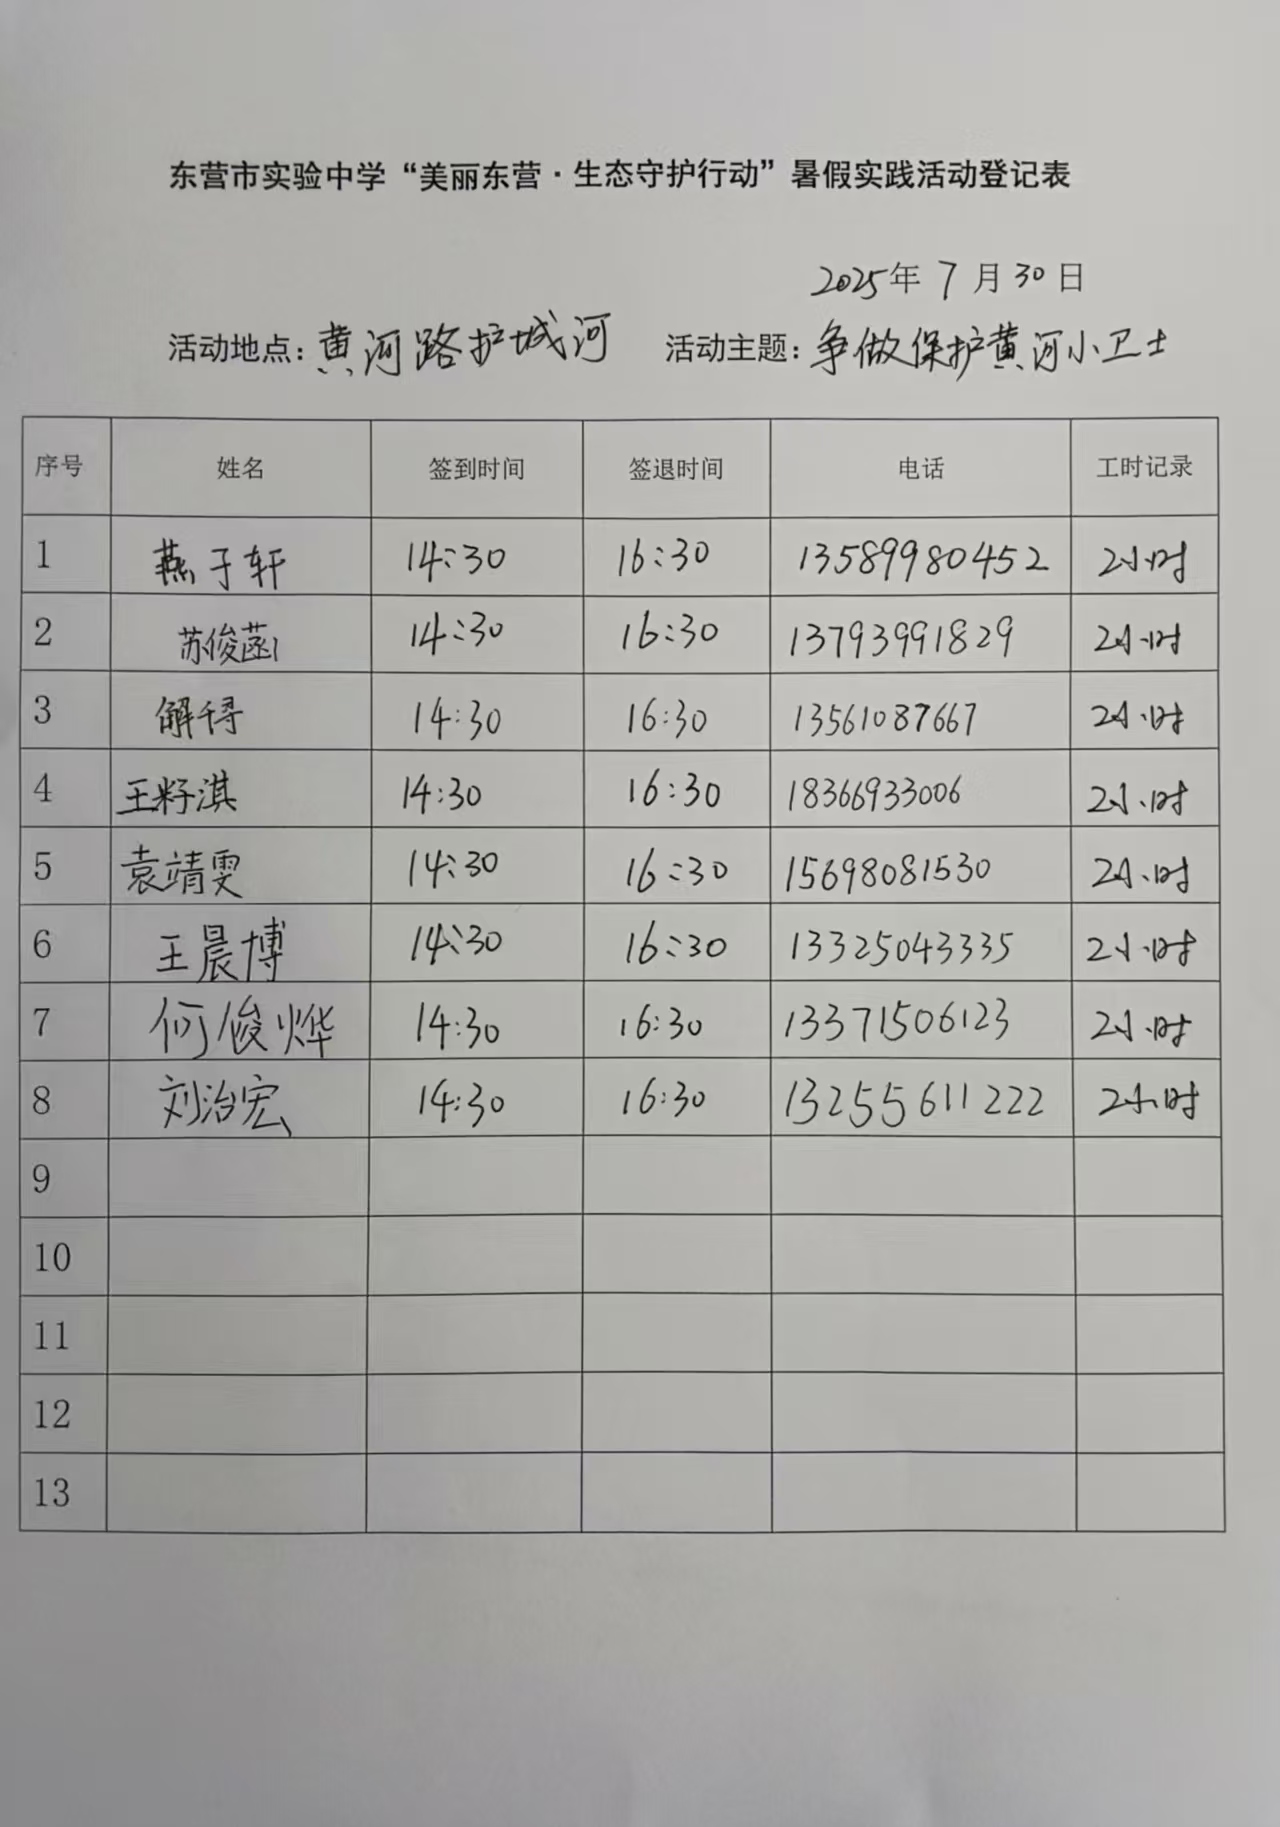 东营市实验中学“美丽东营·生态守护行动”暑假实践活动登记表
2025年 7 月 30 日
活动地点：黄河路护城河 活动主题：争做保护黄河小卫士
序号 姓名 签到时间 签退时间 电话 工时记录
1 燕子轩 14:30 16:30 13589980452 2小时
2 苏俊菡 14:30 16:30 13793991829 2小时
3 解 14:30 16:30 13561087667 2小时
4 王籽淇 14:30 16:30 18366933006 2小时
5 袁靖雯 14:30 16:30 15698081530 2小时
6 王晨博 14:30 16:30 13325043335 2小时
7 何俊烨 14:30 16:30 13371506123 2小时
8 刘治宏 14:30 16:30 13255611222 2小时
9
10
11
12
13